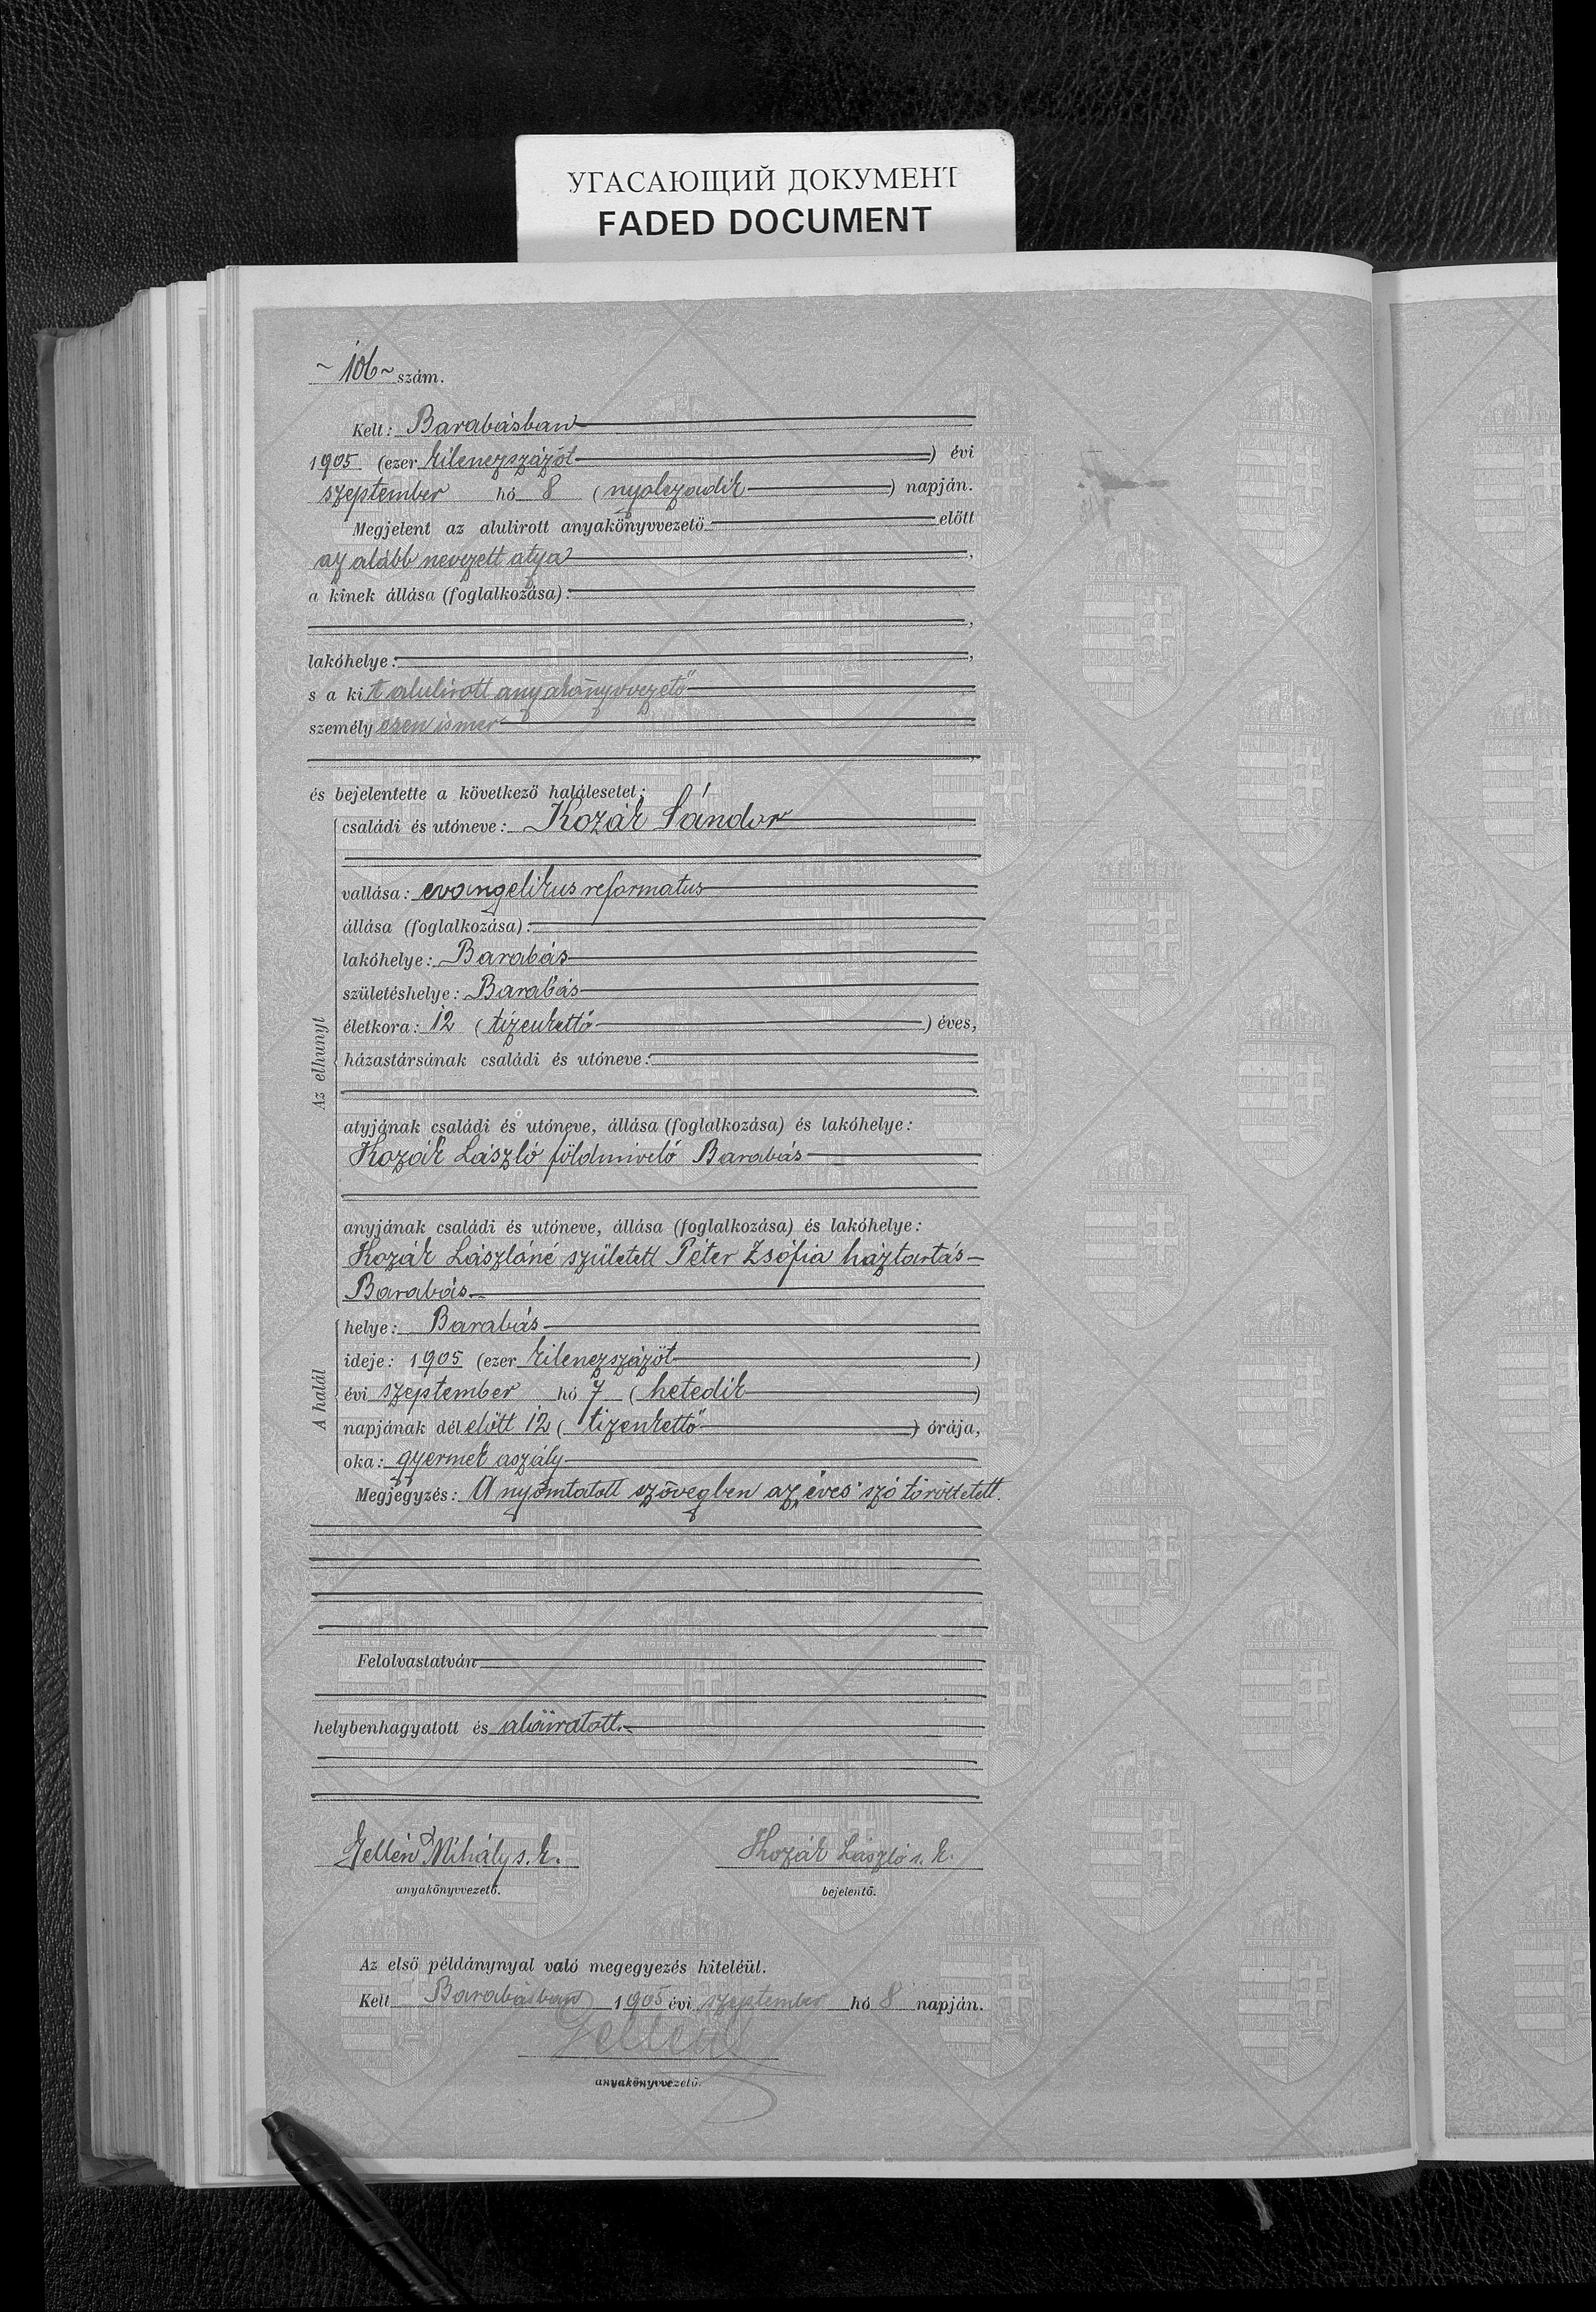 УГАСАЮЩИЙ ДОКУМЕНТ
FADED DOCUMENT
~ 106 ~ szám.
Kelt: Barabásban
1905 (ezer kilenczszázöt ) évi
szeptember hó 8 (nyolczadik ) napján.
Megjelent az alulirott anyakönyvvezető előtt
az alább nevezett atya ,
a kinek állása (foglalkozása):
,
lakóhelye: ,
s a kit alulirott anyakönyvvezető
személyesen ismer
,
és bejelentette a következő halálesetet:
Az elhunyt
családi és utóneve: Kozák Sándor
vallása: evangelikus reformatus
állása (foglalkozása):
lakóhelye: Barabás
születéshelye: Barabás
életkora: 12 (tizenkettő ) éves,
házastársának családi és utóneve:
atyjának családi és utóneve, állása (foglalkozása) és lakóhelye:
Kozák László földmivelő Barabás
anyjának családi és utóneve, állása (foglalkozása) és lakóhelye:
Kozák Lászlóné született Péter Zsófia háztartás
Barabás
A halál
helye: Barabás
ideje: 1905 (ezer kilenczszázöt )
évi szeptember hó 7 (hetedik )
napjának dél előtt 12 (tizenkettő ) órája,
oka: gyermek aszály
Megjegyzés: A nyomtatott szövegben az „éves" szó töröltetett.
Felolvastatván
helybenhagyatott és aláiratott.
Gellén Mihály s. k. Kozák László s. k.
anyakönyvvezető. bejelentő.
Az első példánynyal való megegyezés hiteléül.
Kelt Barabásban 1905 évi szeptember hó 8 napján.
Gellén
anyakönyvvezető.